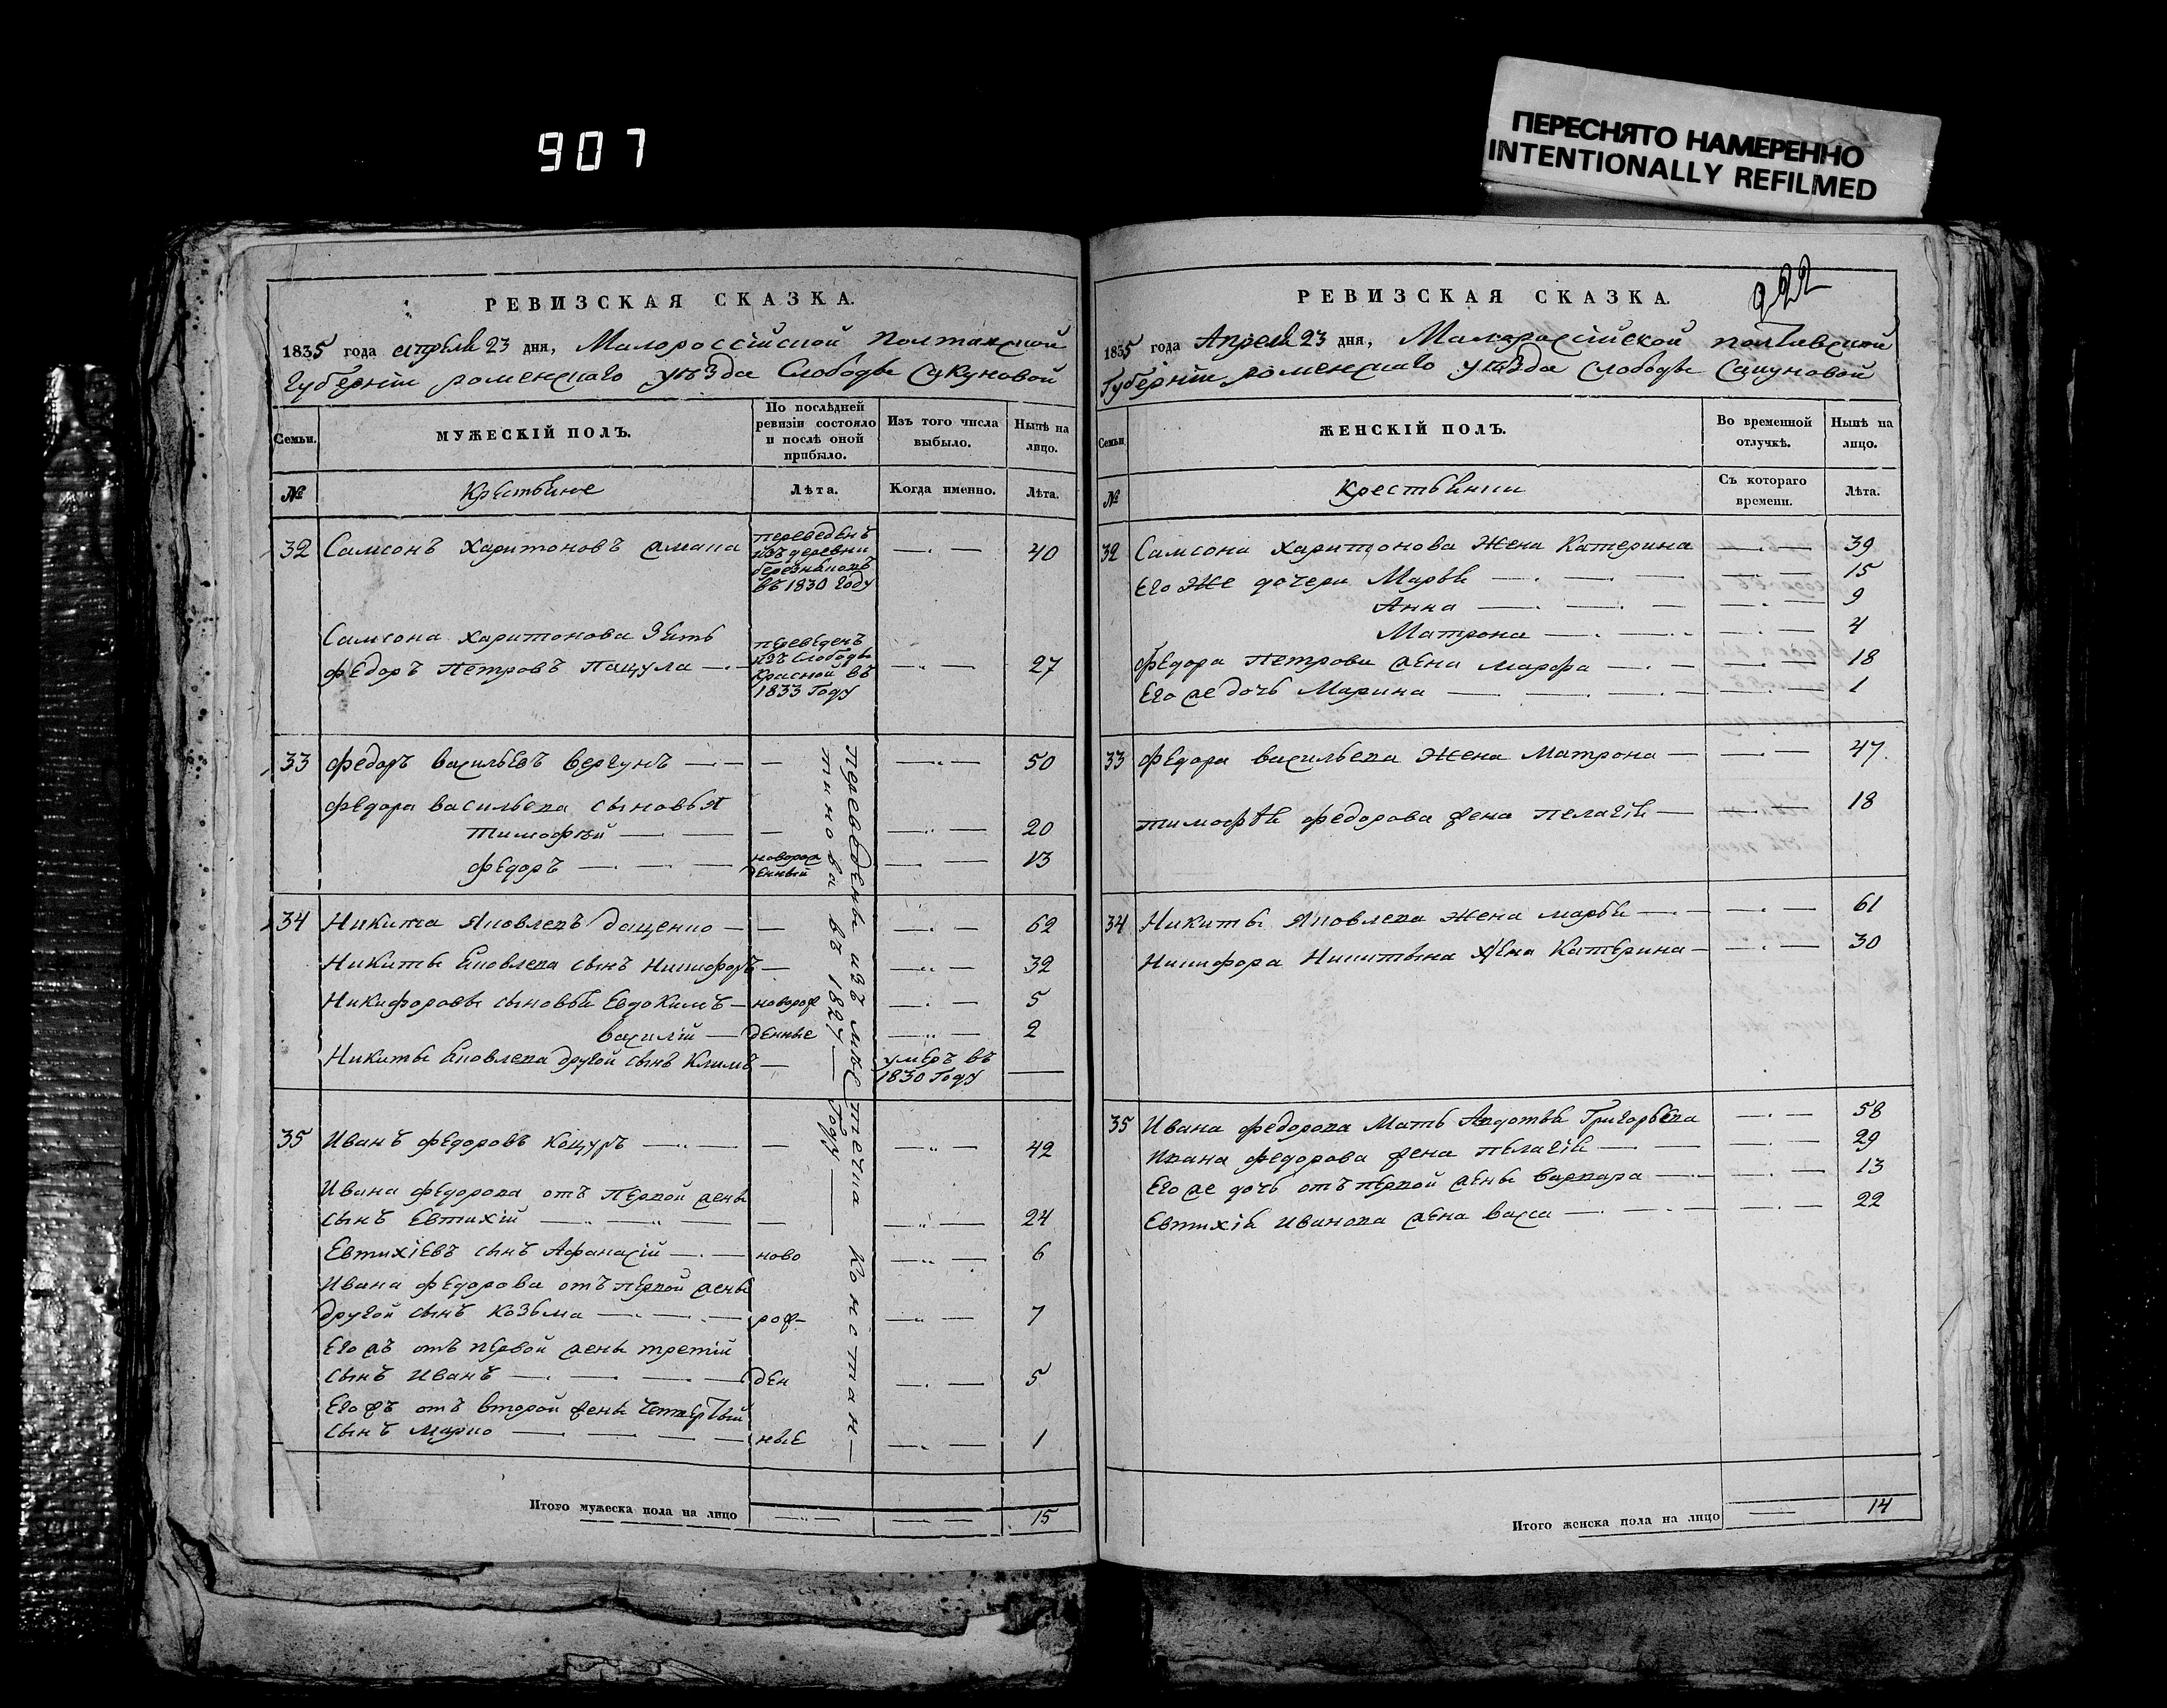 907
ПЕРЕСНЯТО НАМЕРЕННО
INTENTIONALLY REFILMED
РЕВИЗСКАЯ СКАЗКА.
1835 года апреля 23 дня, Малороссійской Полтавской
Губерніи роменскаго уѣзда Слободы
Семьи.
МУЖЕСКІЙ ПОЛЪ.
По послѣдней ревизіи состояло и послѣ оной прибыло.
Изъ того числа выбыло.
Нынѣ на лицо.
№
Крестьяне
Лѣта.
Когда именно.
Лѣта.
32 Самсонъ Харитоновъ
переведенъ изъ деревни
въ 1830 Году
40
Самсона Харитонова Зять
Федоръ Петровъ Пацула
переведенъ изъ Слободы Красной въ 1833 Году
27
33 Федоръ Васильевъ Вергунъ 50
Федора Васильева сыновья
Тимофѣй 20
Федоръ новорожденный 13
34 Никита Яковлевъ Дащенко 62
Никиты Яковлева сынъ Никифоръ 32
Никифоровы сыновья Евдокимъ новорож 5
Василій денные 2
Никиты Яковлева другой сынъ Климъ умеръ въ 1830 Году
35 Иванъ Федоровъ Коцуръ 42
Ивана Федорова отъ первой жены
сынъ Евтихій 24
Евтихіевъ сынъ Афанасій ново 6
Ивана Федорова отъ первой жены
другой сынъ Козьма рож- 7
Его жъ отъ первой жены третій
сынъ Иванъ ден 5
Его жъ отъ второй жены четвертый
сынъ Марко ные 1
переведены изъ мѣстечка Константинова въ 1827 Году
Итого мужеска пола на лицо 15
РЕВИЗСКАЯ СКАЗКА.
922
1835 года Апреля 23 дня, Малоросійской полтавской
Губерніи роменскаго уѣзда слободы
Семьи
ЖЕНСКІЙ ПОЛЪ.
Во временной отлучкѣ.
Нынѣ на лицо.
№
Крестьянки
Съ котораго времени.
Лѣта.
32 Самсона Харитонова Жена Катерина 39
Его Же дочери Марья 15
Анна 9
Матрона 4
Федора Петрова жена Марфа 18
Его же дочь Марина 1
33 Федора Васильева Жена Матрона 47
Тимофѣя Федорова жена Пелагія 18
34 Никиты Яковлева жена Марья 61
Никифора Никитына Жена Катерина 30
35 Ивана Федорова Мать Авдотья Григорьева 58
Ивана Федорова жена Пелагія 29
Его же дочь отъ первой жены Варвара 13
Евтихія Иванова жена Васса 22
Итого женска пола на лицо 14